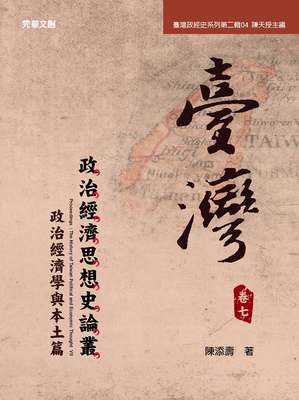 元華文創
臺灣政經史系列第二輯04 陳天授主編
臺灣
卷七
政治經濟思想史論叢
Proceedings: The History of Taiwan Political and Economic Thought VII
政治經濟學與本土篇
陳添壽 著